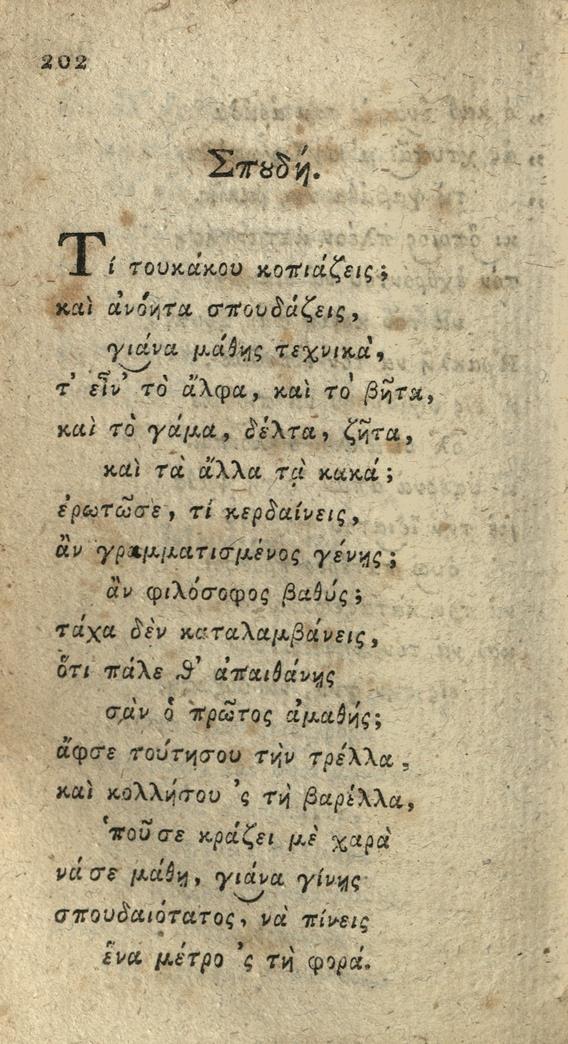 202
Σπȣδή.
Τί τουκάκου κοπιάζεις;
καὶ ἀνόητα σπουδάζεις,
γιάνα μάθῃς τεχνικὰ,
τ' εἶν' τὸ ἄλφα, καὶ τὸ βῆτα,
καὶ τὸ γάμα, δέλτα, ζῆτα,
καὶ τὰ ἄλλα τὰ κακά;
ἐρωτῶσε, τί κερδαίνεις,
ἂν γραμματισμένος γένῃς;
ἂν φιλόσοφος βαθύς;
τάχα δὲν καταλαμβάνεις,
ὅτι πάλε θ' ἀπαιθάνῃς
σὰν ὁ πρῶτος ἀμαθής;
ἄφσε τούτησου τὴν τρέλλα,
καὶ κολλήσου 'ς τὴ βαρέλλα,
'ποῦ σε κράζει μὲ χαρὰ
νά σε μάθῃ, γιάνα γίνῃς
σπουδαιότατος, νὰ πίνεις
ἕνα μέτρο 'ς τὴ φορά.